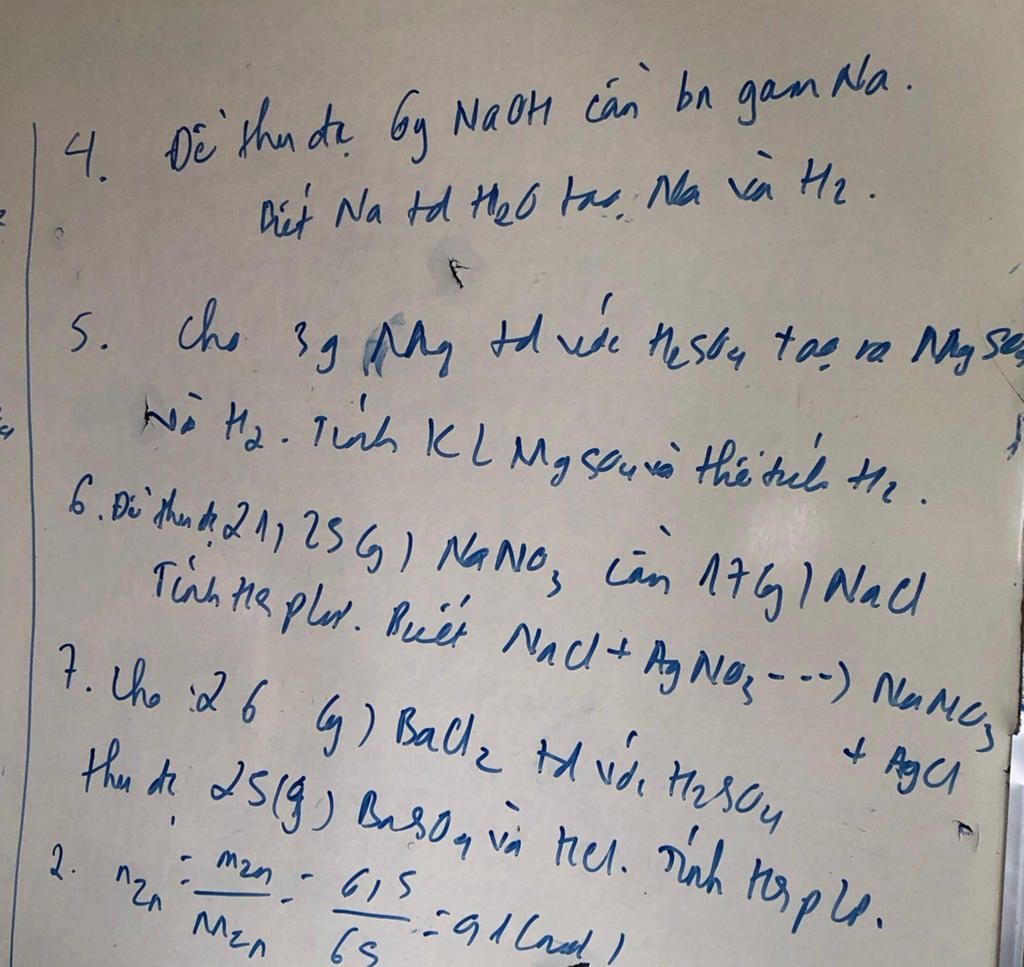 4. Để thu đc 6g NaOH cần bn gam Na.
Biết Na td H2O tạo Na và H2.
5. Cho 3g Mg td với H2SO4 tạo ra MgSO4
và H2. Tính KL MgSO4 và thể tích H2.
6. Để thu đc 21,25(g) NaNO3 cần 17(g) NaCl
Tính HS phư. Biết NaCl + AgNO3 ---> NaNO3
+ AgCl
7. Cho 26 (g) BaCl2 td với H2SO4
thu đc 25(g) BaSO4 và HCl. Tính HS pư.
2. nZn = mZn / MZn = 6,5 / 65 = 0,1 (mol)